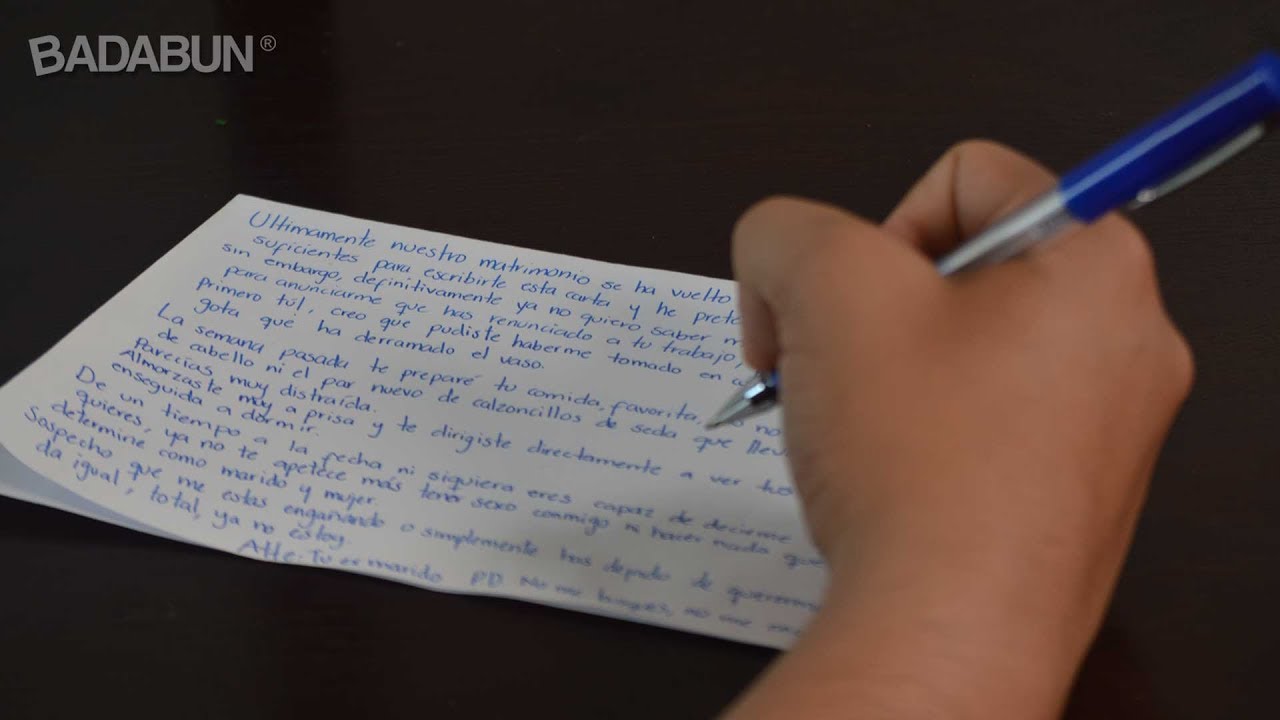 BADABUN®
Ultimamente nuestro matrimonio se ha vuelto
suficientes para escribirte esta carta y he
sin embargo, definitivamente ya no quiero saber
para anunciarme que has renunciado a tu trabajo,
primero tú!, creo que pudiste haberme tomado en
gota qué ha derramado el vaso.
La semana pasada te preparé tu comida favorita,
de cabello ni el par nuevo de calzoncillos de seda que
Parecías muy distraída.
Almorzaste muy a prisa y te dirigiste directamente a ver
enseguida a dormir.
De un tiempo a la fecha ni siquiera eres capaz de decirme
quieres, ya no te apetece más tener sexo conmigo ni hacer nada que
determine como marido y mujer.
Sospecho que me estas engañando o simplemente has dejado de
da igual, total, ya no estoy.
Atte: Tu ex marido P.D. No me busques, no me